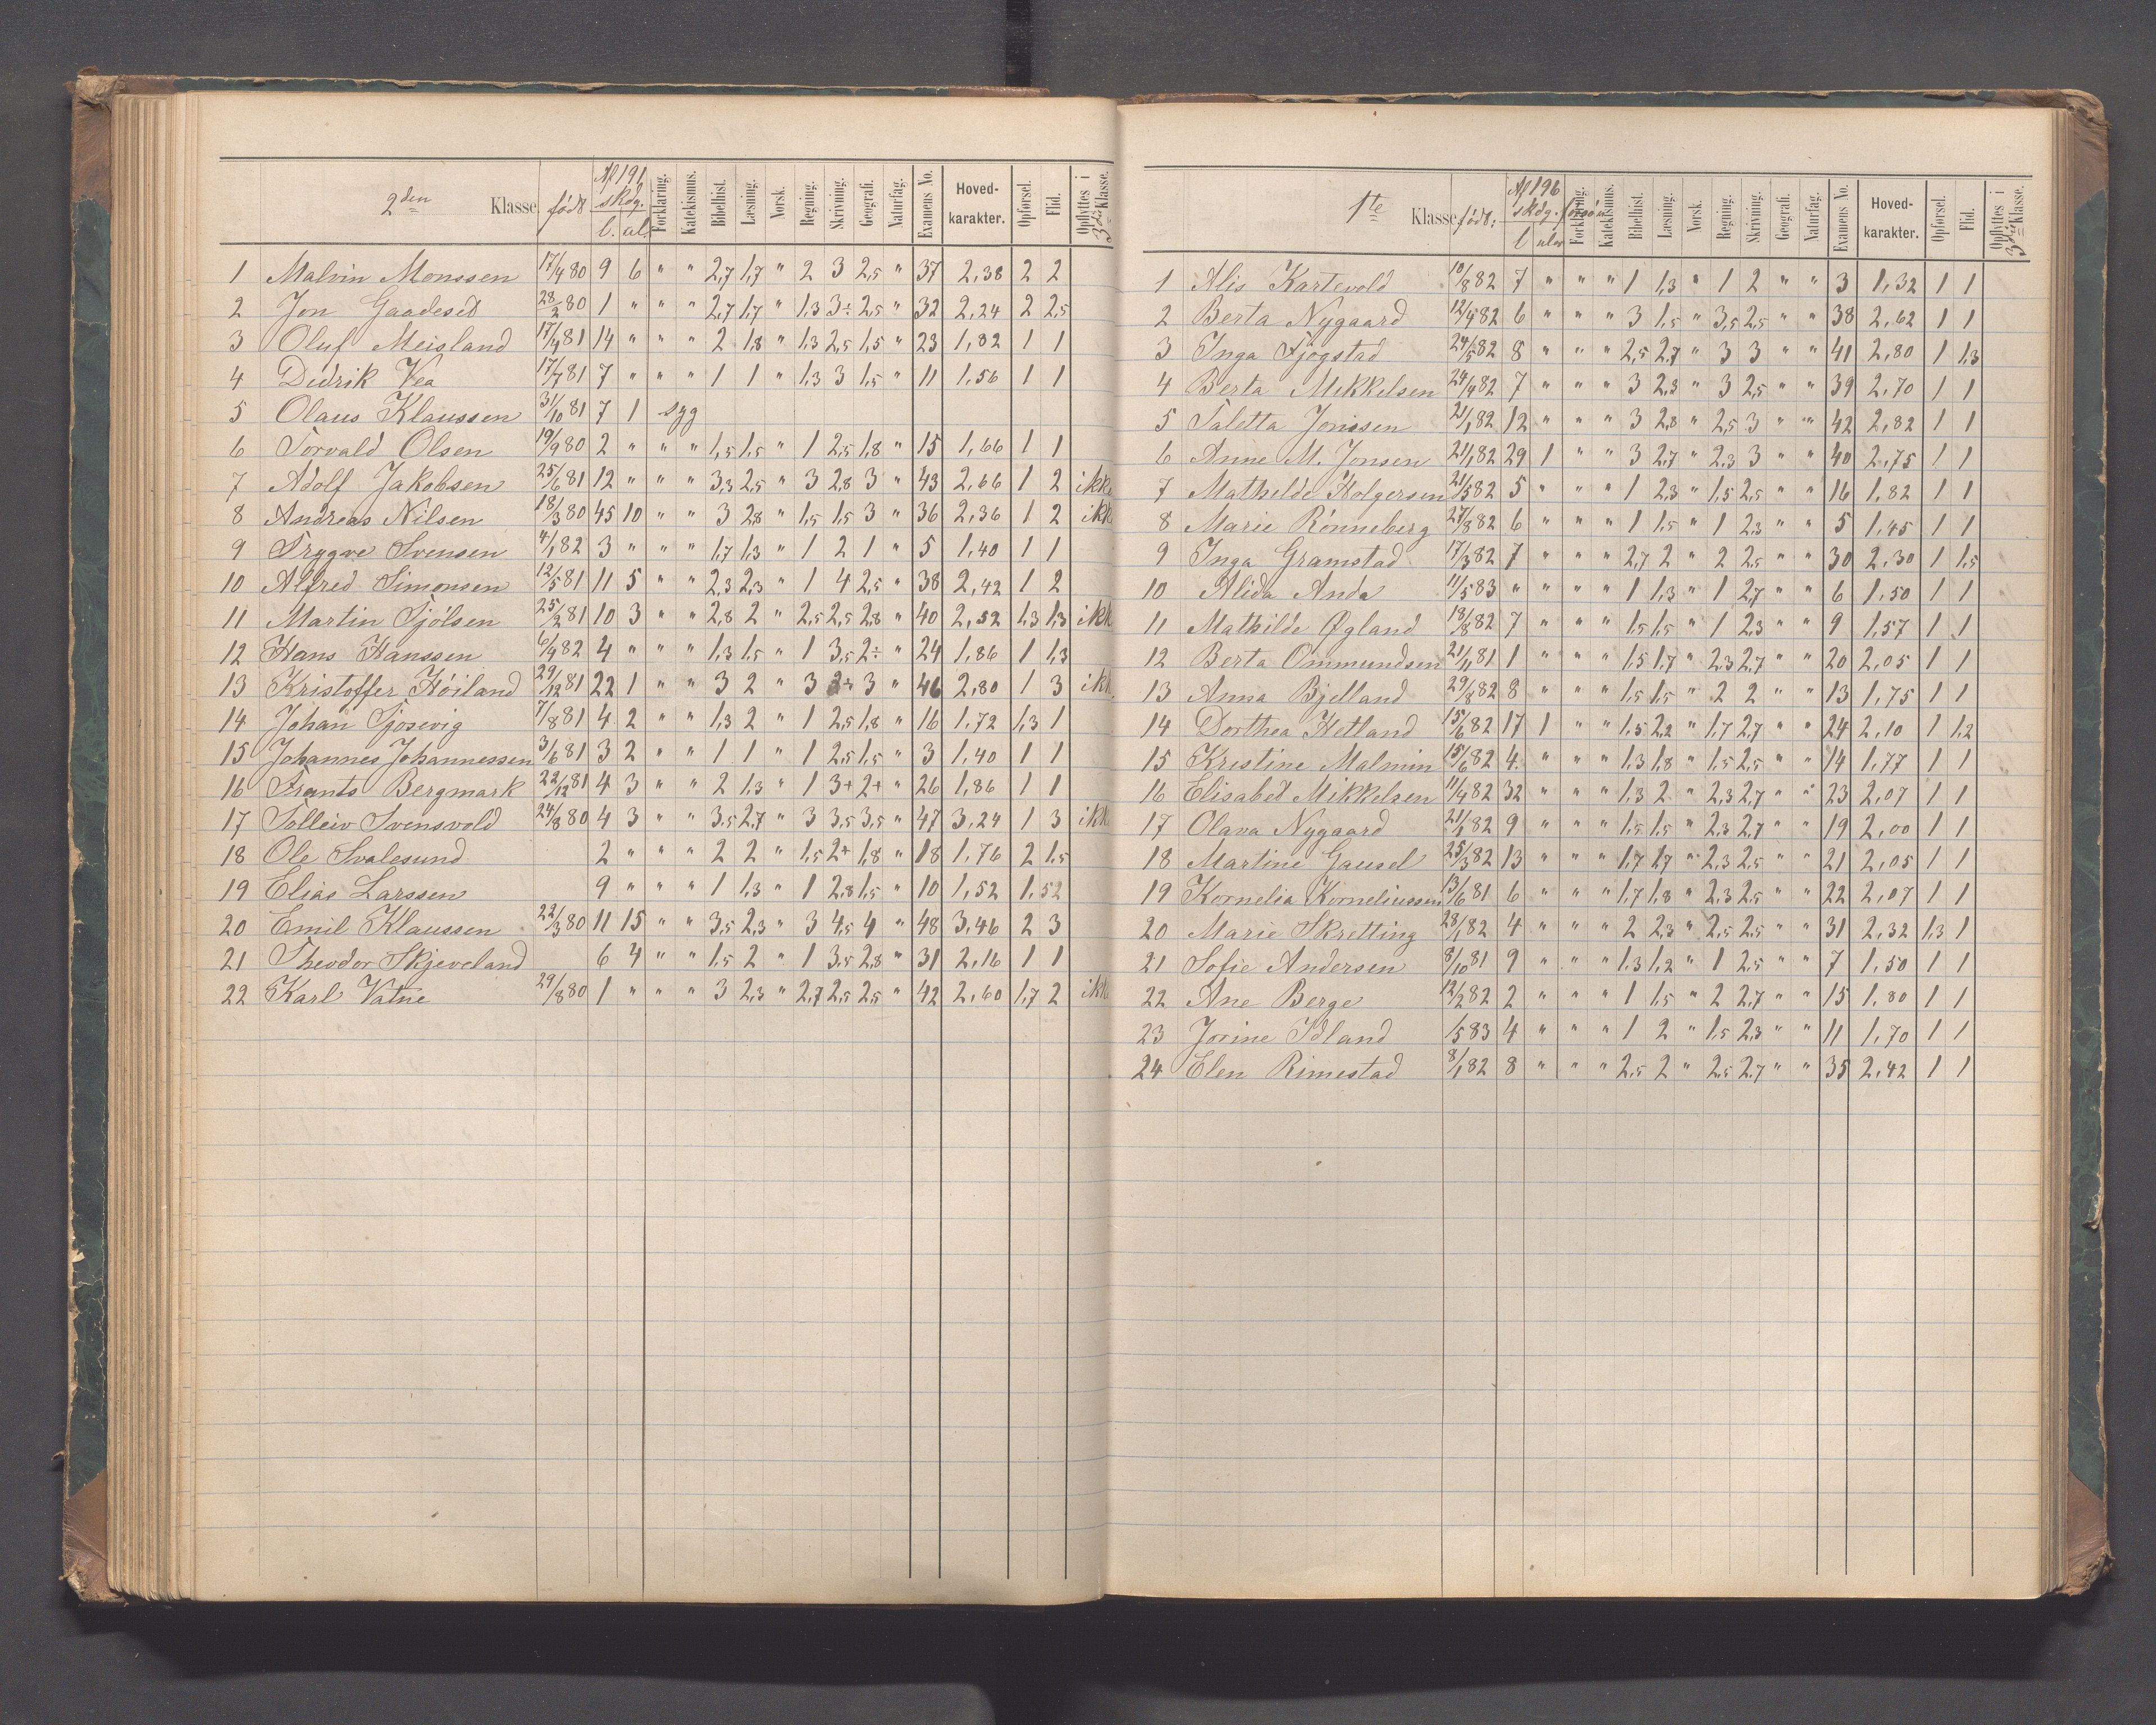 2den Klasse. født Af 191 skdg. l. ul. Forklaring. Katekismus. Bibelhist. Læsning. Norsk. Regning. Skrivning. Geografi. Naturfag. Examens No. Hoved-karakter. Opførsel. Flid. Opflyttes i 3die Klasse.
1 Malvin Monssen 17/4 80 9 6 " " 2,7 1,7 " 2 3 2,5 " 37 2,38 2 2
2 Jon Gaadesed 28/2 80 1 " " " 2,7 1,7 " 1,3 3÷ 2,5 " 32 2,24 2 2,5
3 Oluf Meisland 17/4 81 14 " " " 2 1,8 " 1,3 2,5 1,5 " 23 1,82 1 1
4 Didrik Vea 17/7 81 7 " " " 1 1 " 1,3 3 1,5 " 11 1,56 1 1
5 Olaus Klaussen 31/10 81 7 1 syg
6 Torvald Olsen 19/9 80 2 " " " 1,5 1,5 " 1 2,5 1,8 " 15 1,66 1 1
7 Adolf Jakobsen 25/6 81 12 " " " 3,3 2,5 " 3 2,8 3 " 43 2,66 1 2 ikke
8 Andreas Nilsen 18/3 80 45 10 " " 3 2,8 " 1,5 1,5 3 " 36 2,36 1 2 ikk
9 Tryggve Svensen 4/1 82 3 " " " 1,7 1,3 " 1 2 1 " 5 1,40 1 1
10 Alfred Simonsen 12/5 81 11 5 " " 2,3 2,3 " 1 4 2,5 " 38 2,42 1 2
11 Martin Tjølsen 25/2 81 10 3 " " 2,8 2 " 2,5 2,5 2,8 " 40 2,52 1,3 1,3 ikk
12 Hans Hanssen 6/4 82 4 " " " 1,3 1,5 " 1 3,5 2÷ " 24 1,86 1 1,3
13 Kristoffer Høiland 29/12 81 22 1 " " 3 2 " 3 3 " 46 2,80 1 3 ikk
14 Johan Tjosevig 7/8 81 4 2 " " 1,3 2 " 1 2,5 1,8 " 16 1,72 1,3 1
15 Johannes Johannessen 3/6 81 3 2 " " 1 1 " 1 2,5 1,5 " 3 1,40 1 1
16 Frants Bergmark 22/12 81 4 3 " " 2 1,3 " 1 3+ 2+ " 26 1,86 1 1
17 Tolleiv Svensvold 24/8 80 4 3 " " 3,5 2,7 " 3 3,5 3,5 " 47 3,24 1 3 ikk
18 Ole Svalesund 2 " " " 2 2 " 1,5 2+ 1,8 " 18 1,76 2 1,5
19 Elias Larssen 9 " " " 1 1,3 " 1 2,8 1,5 " 10 1,52 1,5 2
20 Emil Klaussen 22/3 80 11 15 " " 3,5 2,3 " 3 4,5 4 " 48 3,46 2 3
21 Theodor Skjeveland 6 4 " " 1,5 2 " 1 3,5 2,8 " 31 2,16 1 1
22 Karl Vatne 29/8 80 1 " " " 3 2,3 " 2,7 2,5 2,5 " 42 2,60 1,7 2 ikk
1te Klasse født: Af 196 skdg. l ulov Forklaring. Katekismus. Bibelhist. Læsning. Norsk. Regning. Skrivning. Geografi. Naturfag. Examens No. Hoved-karakter. Opførsel. Flid. Opflyttes i 3die Klasse.
1 Alis Kartevold 10/8 82 7 " " " 1 1,3 " 1 2 " " 3 1,32 1 1
2 Berta Nygaard 12/4 82 6 " " " 3 1,5 " 3,5 2,5 " " 38 2,62 1 1
3 Inga Sjøgstad 24/5 82 8 " " " 2,5 2,7 " 3 3 " " 41 2,80 1 1,3
4 Berta Mikkelsen 24/4 82 7 " " " 3 2,3 " 3 2,5 " " 39 2,70 1 1
5 Taletta Jonssen 21/1 82 12 " " " 3 2,8 " 2,5 3 " " 42 2,82 1 1
6 Anne M. Jonsen 21/1 82 29 1 " " 3 2,7 " 2,3 3 " " 40 2,75 1 1
7 Mathilde Holgersen 21/5 82 5 " " " 1 2,3 " 1,5 2,5 " " 16 1,82 1 1
8 Marie Rønneberg 27/8 82 6 " " " 1 1,5 " 1 2,3 " " 5 1,45 1 1
9 Inga Gramstad 17/3 82 7 " " " 2,7 2 " 2 2,5 " " 30 2,30 1 1,5
10 Alida Anda 11/5 83 " " " " 1 1,3 " 1 2,7 " " 6 1,50 1 1
11 Mathilde Øgland 18/8 82 7 " " " 1,5 1,5 " 1 2,3 " " 9 1,57 1 1
12 Berta Ommundsen 21/11 81 1 " " " 1,5 1,7 " 2,3 2,7 " " 20 2,05 1 1
13 Anna Bjelland 29/8 82 8 " " " 1,5 1,5 " 2 2 " " 13 1,75 1 1
14 Dorthea Hetland 15/6 82 17 1 " " 1,5 2,2 " 1,7 2,7 " " 24 2,10 1 1,2
15 Kristine Malmin 15/6 82 4 " " " 1,3 1,8 " 1,5 2,5 " " 14 1,77 1 1
16 Elisabed Mikkelsen 11/4 82 32 " " " 1,3 2 " 2,3 2,7 " " 23 2,07 1 1
17 Olava Nygaard 21/1 82 9 " " " 1,5 1,5 " 2,3 2,7 " " 19 2,00 1 1
18 Martine Gausel 25/3 82 13 " " " 1,7 1,7 " 2,3 2,5 " " 21 2,05 1 1
19 Kornelia Korneliussen 13/6 81 6 " " " 1,7 1,8 " 2,3 2,5 " " 22 2,07 1 1
20 Marie Skretting 28/1 82 4 " " " 2 2,3 " 2,5 2,5 " " 31 2,32 1,3 1
21 Sofie Andersen 8/10 81 9 " " " 1,3 1,2 " 1 2,5 " " 7 1,50 1 1
22 Ane Berge 12/2 82 2 " " " 1 1,5 " 2 2,7 " " 15 1,80 1 1
23 Jorine Idland /5 83 4 " " " 1 2 " 1,5 2,3 " " 11 1,70 1 1
24 Elen Rimestad 8/1 82 8 " " " 2,5 2 " 2,5 2,7 " " 35 2,42 1 1